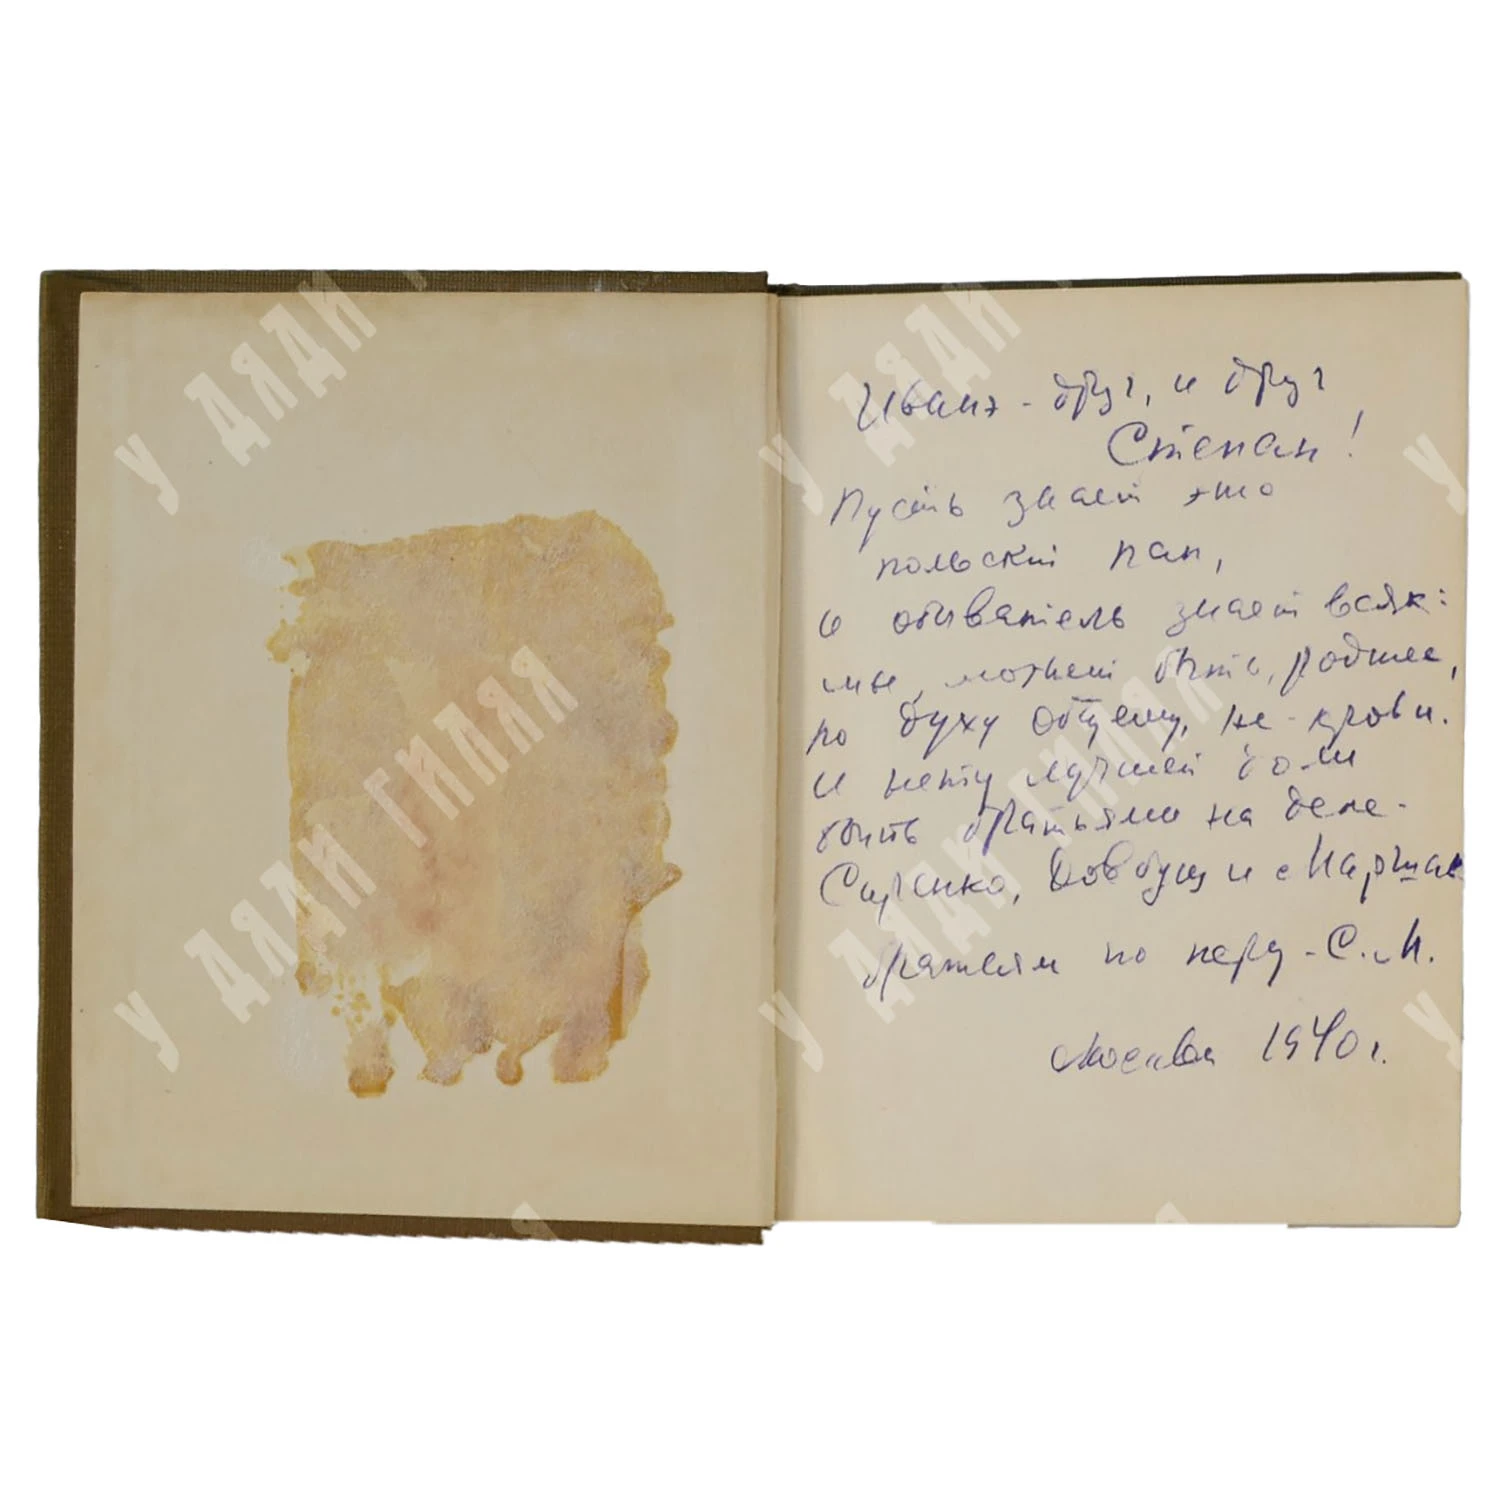 Иванэ - друг, и друг
Степан!
Пусть знает это
польский пан,
и обыватель знает всяк:
мы, может быть, роднее,
по духу общему, не - крови.
И нету лучшей доли
быть братьями на деле -
Сириенко, Довбущ и Маршак
братьям по перу - С. М.
Москва 1940 г.
У ДЯДИ ГИЛЯЯ